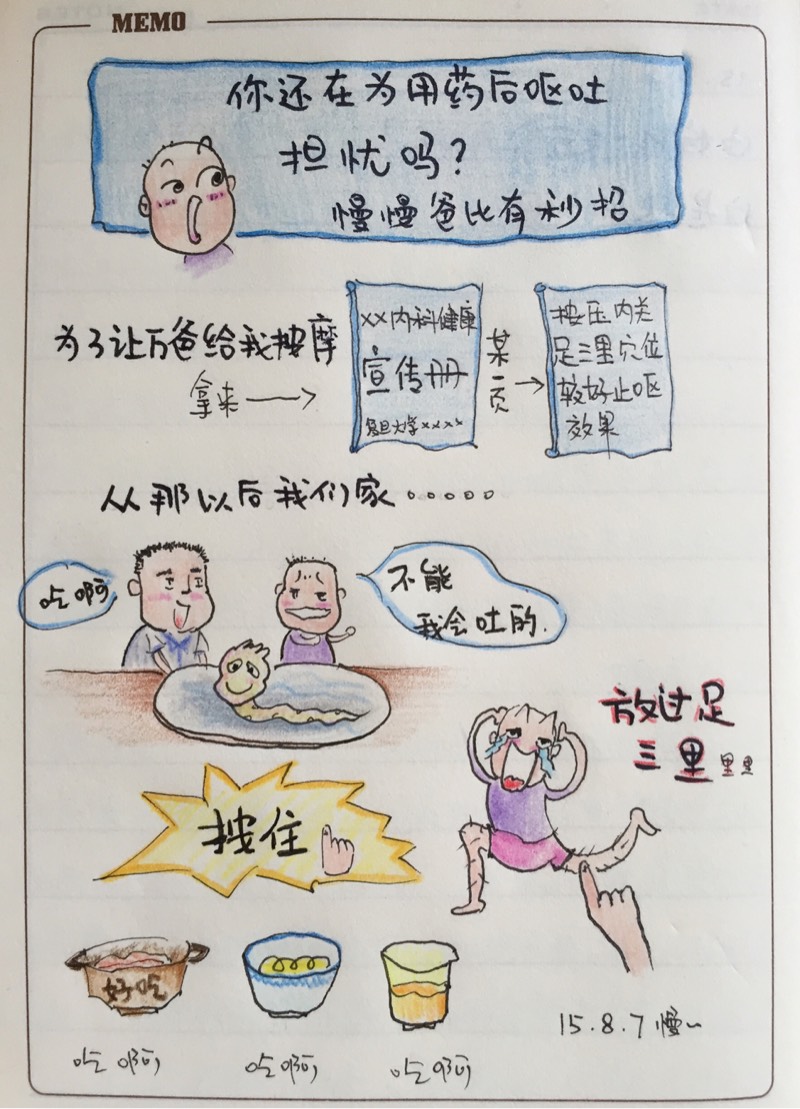 MEMO
你还在为用药后呕吐
担忧吗？
慢慢爸比有秒招
为了让万爸给我按摩
拿来
××内科健康
宣传册
复旦大学××××
某一页
按压内关
足三里穴位
较好止呕
效果
从那以后我们家。。。。。
吃啊
不能
我会吐的.
放过足
三里里里
按住
好吃
吃啊
吃啊
吃啊
15.8.7慢~